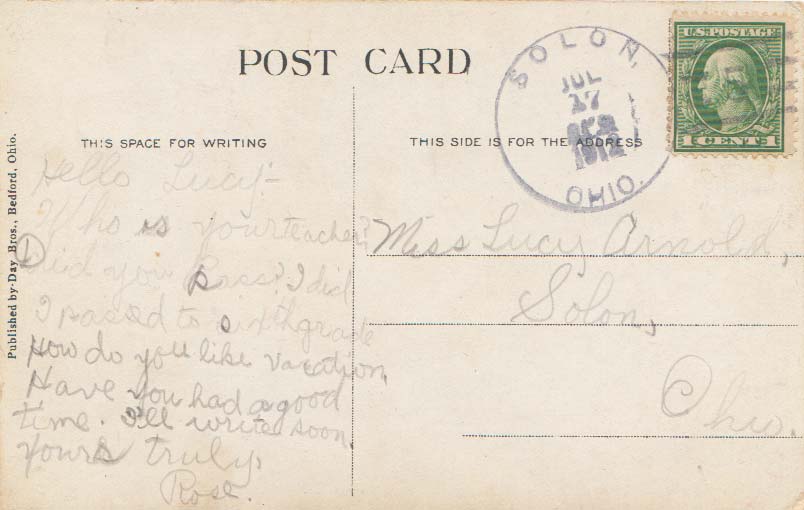 POST CARD
SOLON,
JUL
17
1912
OHIO.
U.S. POSTAGE
1 CENT 1
THIS SPACE FOR WRITING
THIS SIDE IS FOR THE ADDRESS
Published by Day Bros., Bedford, Ohio.
Hello Lucy:-
Who is your teacher?
Did you Pass? I did
I passed to sixth grade
How do you like vacation,
Have you had a good
time. I'll write soon.
Yours truly,
Rose.
Miss Lucy Arnold,
Solon,
Ohio.